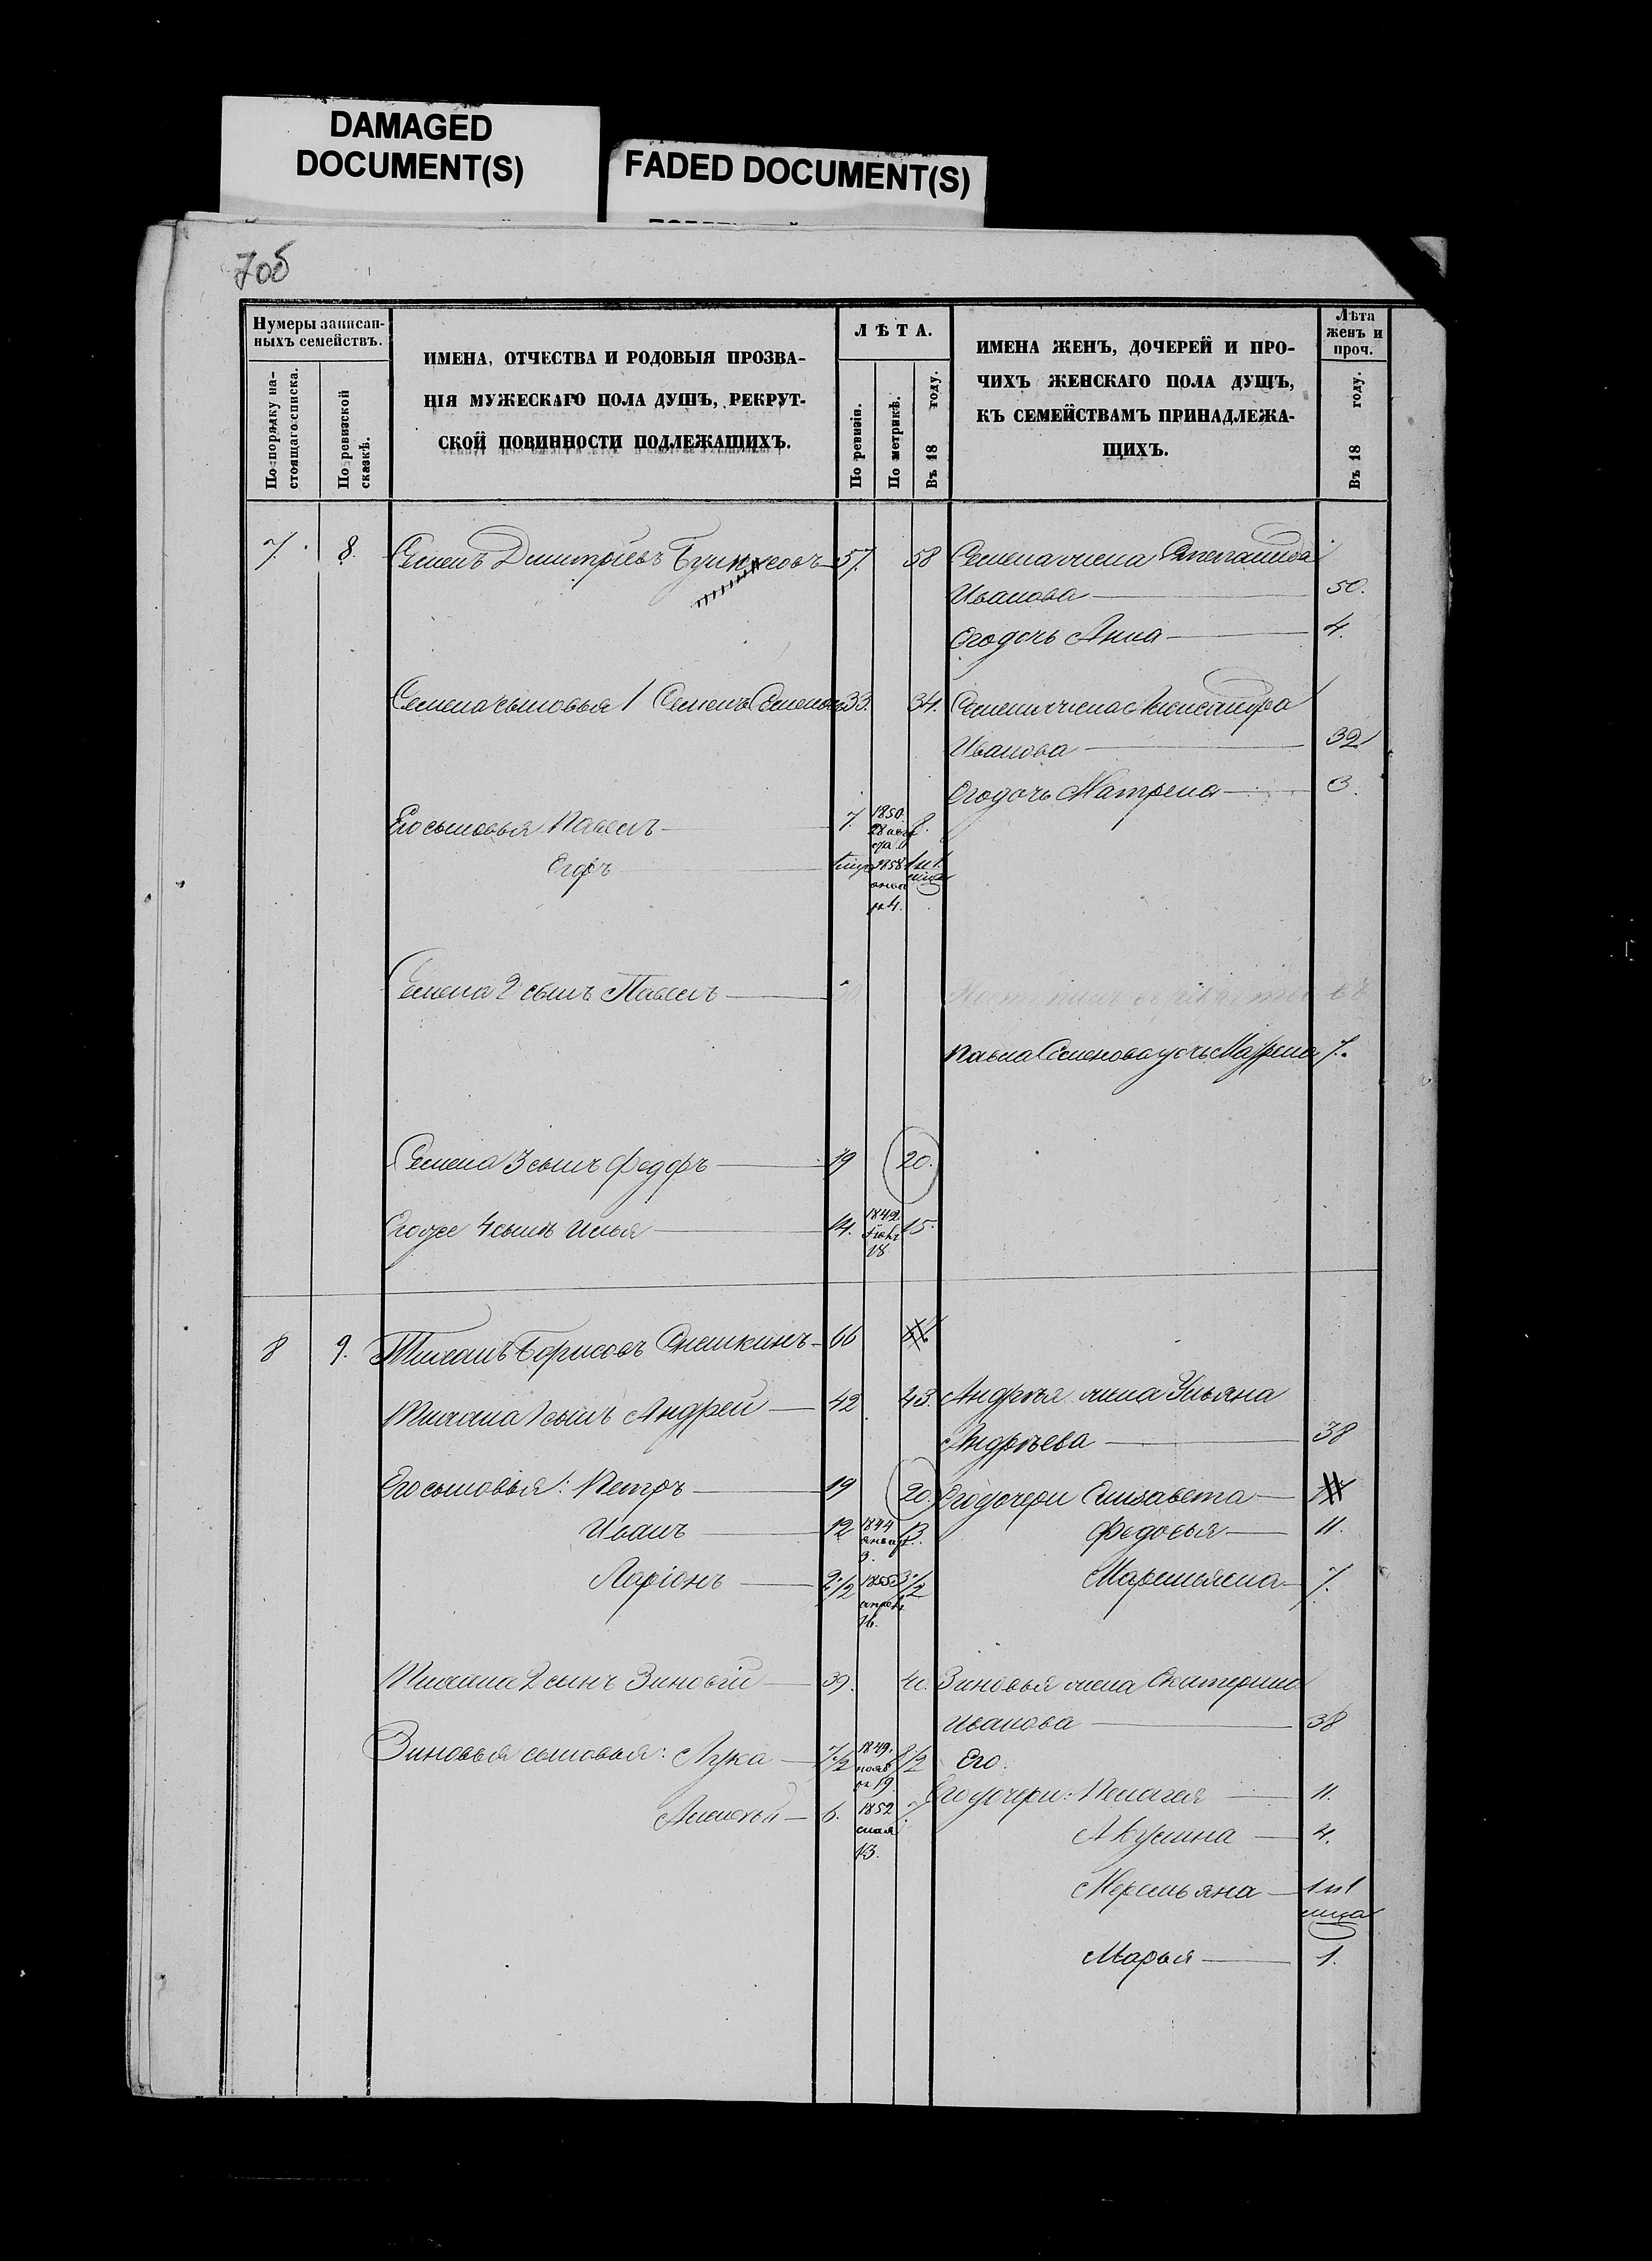 DAMAGED
DOCUMENT(S)
FADED DOCUMENT(S)
7об
Нумеры записан-
ныхъ семействъ.
По порядку на-
стоящаго списка.
По ревизской
сказкѣ.
ИМЕНА, ОТЧЕСТВА И РОДОВЫЯ ПРОЗВА-
НІЯ МУЖЕСКАГО ПОЛА ДУШЪ, РЕКРУТ-
СКОЙ ПОВИННОСТИ ПОДЛЕЖАЩИХЪ.
ЛѢТА.
По ревизіи.
По метрикѣ.
Въ 18 году.
ИМЕНА ЖЕНЪ, ДОЧЕРЕЙ И ПРО-
ЧИХЪ ЖЕНСКАГО ПОЛА ДУШЪ,
КЪ СЕМЕЙСТВАМЪ ПРИНАДЛЕЖА-
ЩИХЪ.
Лѣта
женъ и
проч.
Въ 18 году.
7. 8. Семенъ Дмитріевъ 57. 58 Семена жена Степанида
Иванова 50.
Его дочь Анна 4.
Семена сыновья 1 Семенъ Семеновъ 33. 34. Семена жена Александра
Иванова 32
Его дочь Матрена 3.
Его сыновья Павелъ 7. 1850. 8.
Егоръ 1858 янва
ря 4.
Семена 2 сынъ Павелъ 30. Поступилъ въ рекруты
Павла Семенова дочь 7.
Семена 3 сынъ Федоръ 19 20.
Его же 4 сынъ Илья 14. 1842. 15.
18
8 9. Борисовъ 66
1 сынъ Андрей 42 43. Андрѣя жена Ульяна
Андрѣева 38
Его сыновья: Петръ 19 20. Его дочери Елизавета
Иванъ 12 1844 13. Федосья 11.
январ
3.
Ларіонъ 2 1/2 1855 3 1/2 7.
апрѣл
16.
2 сынъ Зиновій 39. 40. Зиновья жена Екатерина
Иванова 38
Зиновья сыновья: Лука 7 1/2 1849. 8 1/2 Его
нояб
ря 19
Его дочери: Пелагея 11.
Алексѣй 6. 1852 7.
мая
13.
Акулина 4.
1 и 1
мѣсяца
Марья 1.